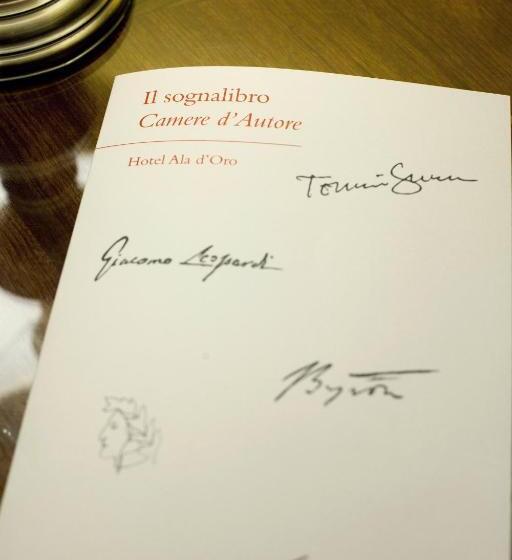 Il sognalibro
Camere d'Autore
Hotel Ala d'Oro
Tonino Guerra
Giacomo Leopardi
Byron